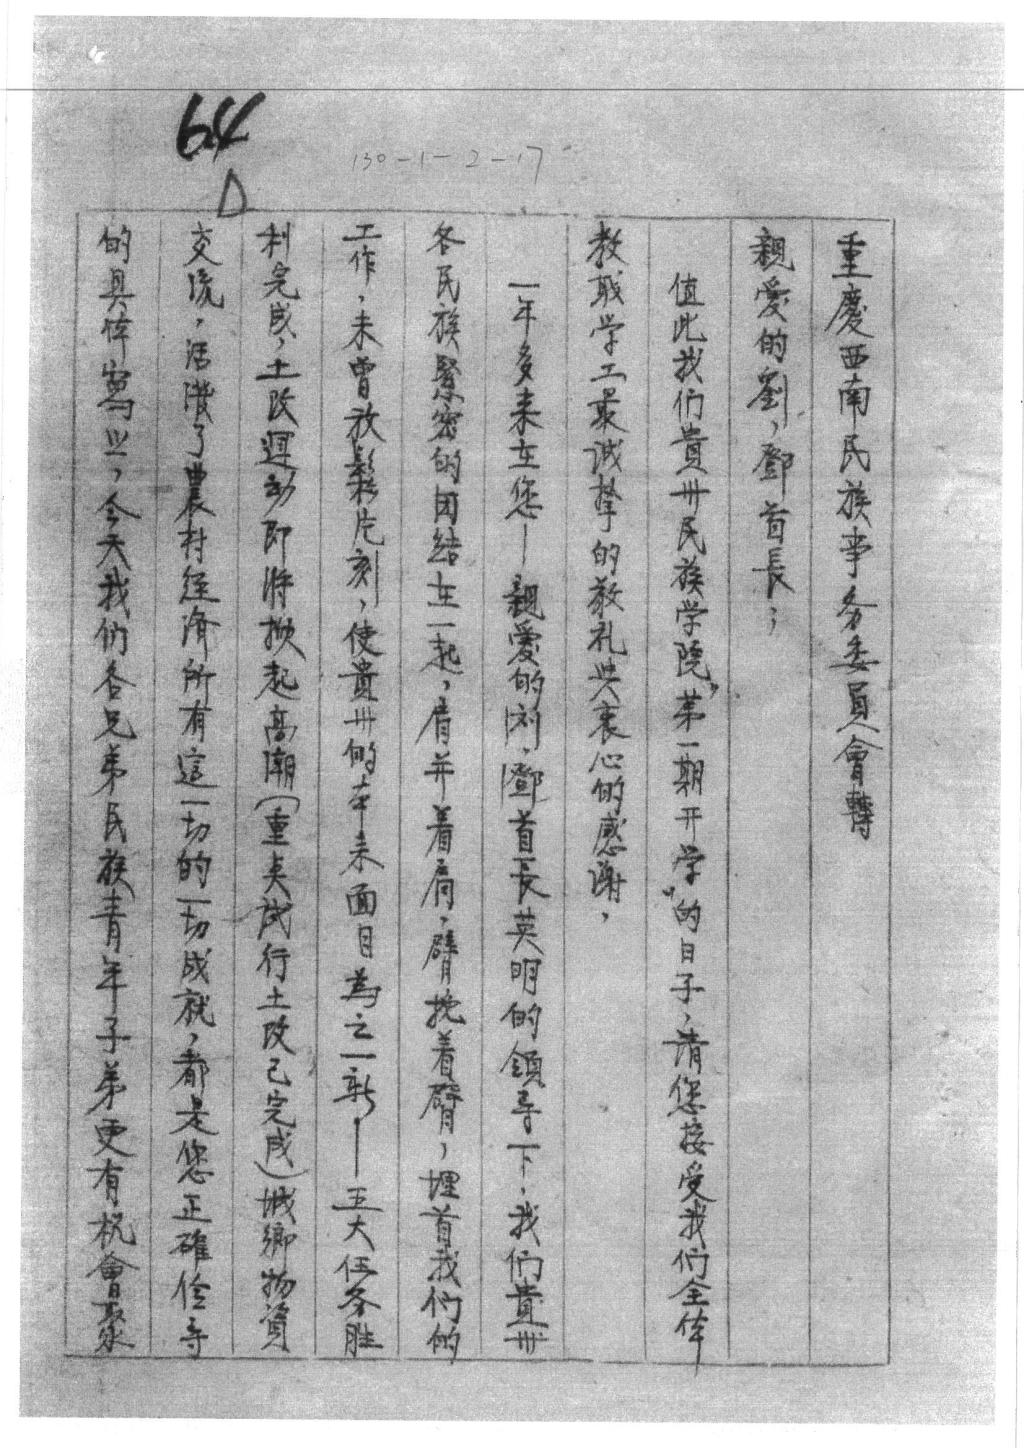 64
D
130-1-2-17
重慶西南民族事务委員會轉
親愛的劉，鄧首長；
值此我们貴卅民族学院“第一期开学”的日子，請您接受我们全体
教职学工最诚挚的敬礼與衷心的感謝，
一年多来在您—親愛的刘，鄧首長英明的領导下，我们貴卅
各民族緊密的团结在一起，肩并着肩，臂挽着臂，埋首我们的
工作，未曾放鬆片刻，使貴卅的本来面目為之一新—五大任务胜
利完成，土改運动即將掀起高潮（重点試行土改已完成）城鄉物資
交流，活潑了農村経濟所有這一切的一切成就，都是您正確領导
的具体寫照，今天我们各兄弟民族青年子弟更有机會聚